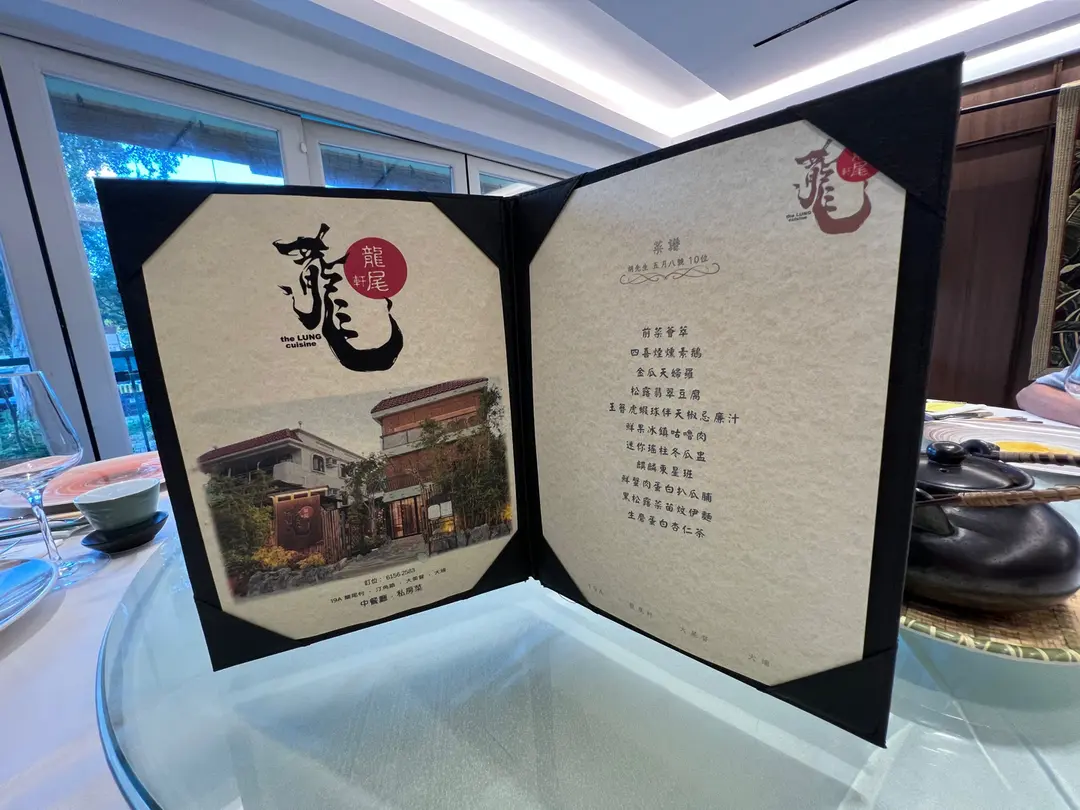 龍
龍尾
軒
the LUNG
cuisine
訂位: 6156 2583
19A 龍尾村 · 汀角路 · 大美督 · 大埔
中餐廳 · 私房菜
龍
尾
軒
the LUNG
cuisine
菜譜
胡先生 五月八號 10位
前菜薈萃
四喜煙燻素鵝
金瓜天婦羅
松露翡翠豆腐
王府虎蝦球伴天椒忌廉汁
鮮果冰鎮咕嚕肉
迷你瑤柱冬瓜盅
麒麟東星班
鮮蟹肉蛋白扒瓜脯
黑松露茶苗炆伊麵
生磨蛋白杏仁茶
19A
龍尾村
大美督
大埔